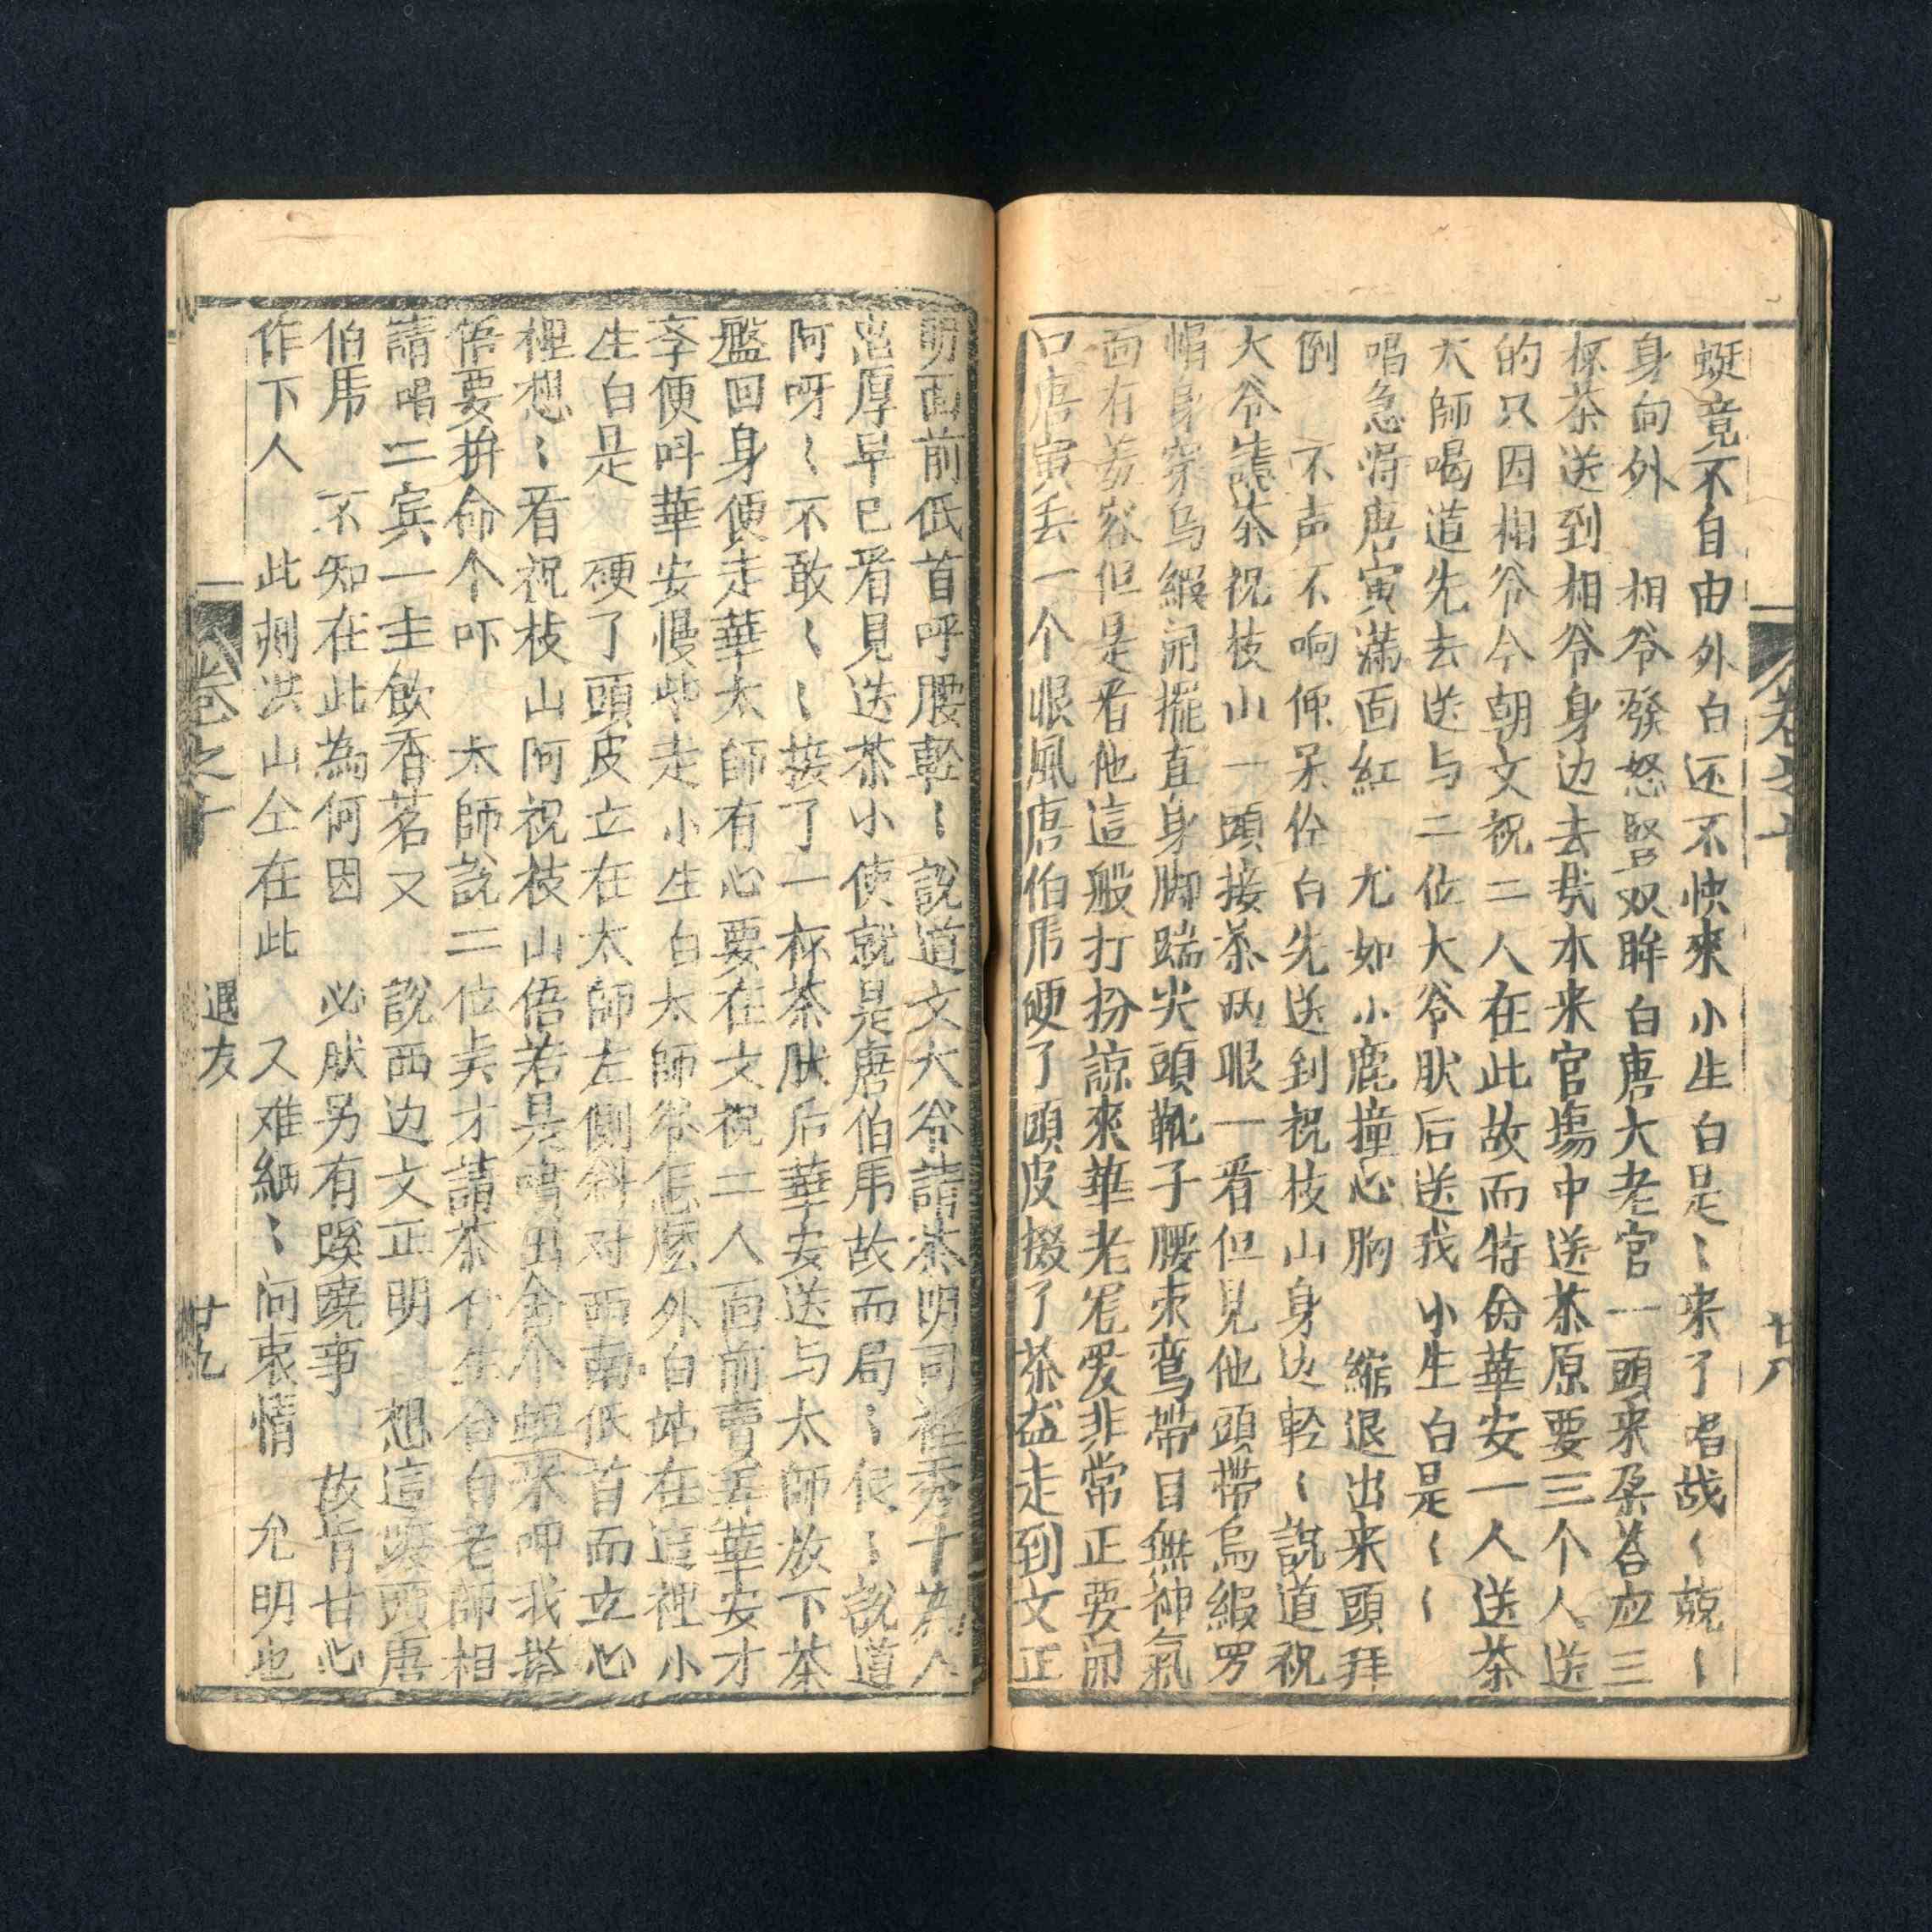 卷之十
廿八
蜓竟不自由外白还不快來小生白是〻来了唱战〻兢〻
身向外　相爷發怒竪双眸白唐大老官一頭来朶荅应三
杯茶送到相爷身边去我本来官塲中送茶原要三个人送
的只因相爷今朝文祝二人在此故而特命華安一人送茶
太師喝道先去送与二位大爷肰后送我小生白是〻〻
唱急得唐寅滿面紅　尤如小鹿撞心胸　縮退出来頭拜
倒　不声不响伓呆佺白先送到祝枝山身边輕〻說道祝
大爷請茶祝枝山一頭接茶两眼一看但見他頭帶烏緞罗
帽身穿烏緞闹擺直身脚踹尖頭靴子腰束鸾帶目無神氣
面有羞容但是看他這般打扮諒來華老冤愛非常正要闹
口唐寅丢一个眼風唐伯乕硬了頭皮掇了茶盃走到文正
明面前低首呼腰輕〻說道文大爷請茶明司祚秀十為人
忠厚早已看見送茶小使就是唐伯乕故而局〻促〻說道
阿呀〻不敢〻〻接了一杯茶肰后華安送与太師放下茶
盤回身便走華太師有心要在文祝二人面前賣弄華安才
孛便呌華安慢些走小生白太師爷怎麽外白站在這裡小
生白是　硬了頭皮立在太師左側斜对西南低首而立心
裡想〻看祝枝山阿祝枝山俉若是喟出命个蛆来呷我搭
俉要拚命个吓　太師說二位矣才請茶介生合白老師相
請唱二宾一主飲香茗又　說西边文正明　想這頭頭唐
伯乕　不知在此為何因　必肰另有蹊蹺事　故肯甘心
作下人　此刻洪山仝在此　又难細〻问衷情　允明也
卷之十
遇友
廿九